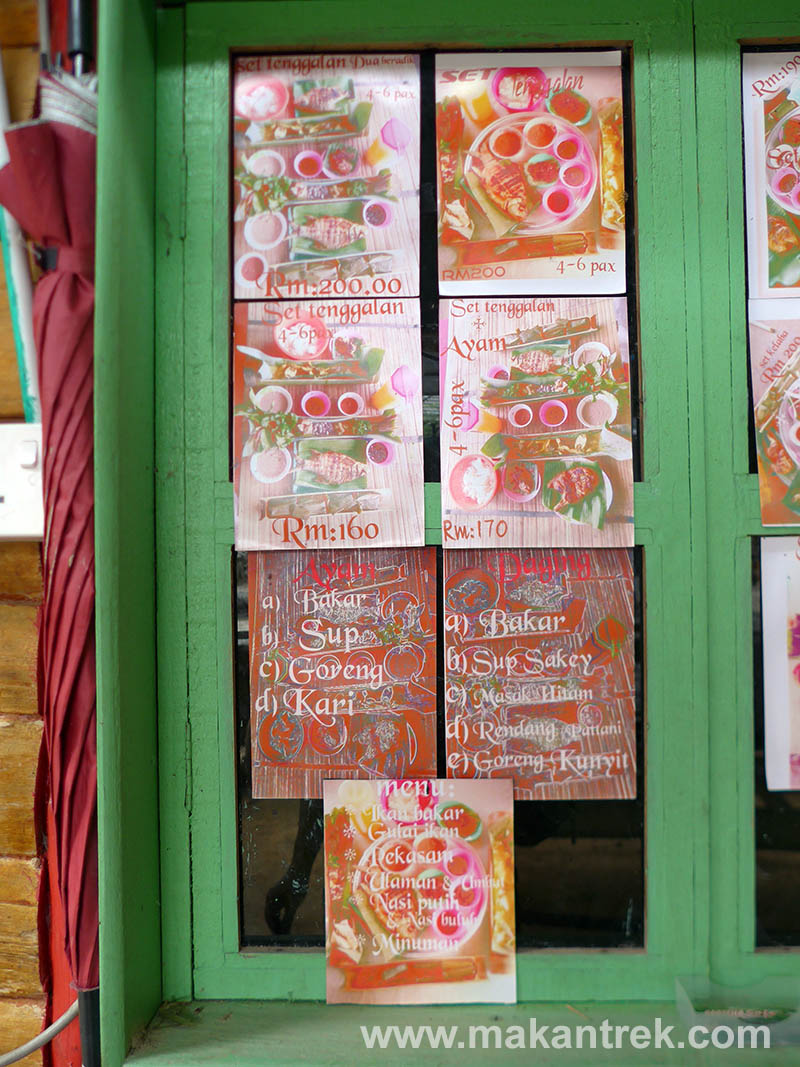 Set tenggalan Dua beradik
4-6 pax
Rm:200.00
SET
Tenggalan
RM200
4-6 pax
Set tenggalan
4-6 pax
Rm:160
Set tenggalan
+
Ayam
4-6pax
Rm:170
Ayam
a) Bakar
b) Sup
c) Goreng
d) Kari
Daging
a) Bakar
b) Sup Sakey
c) Masak Hitam
d) Rendang Pattani
e) Goreng Kunyit
menu:
Ikan bakar
* Gulai ikan
* Pekasam
* Ulaman & Umbut
* Nasi putih
& Nasi buluh
* Minuman
Rm:190
Set
set kelulia
Rm 200
www.makantrek.com